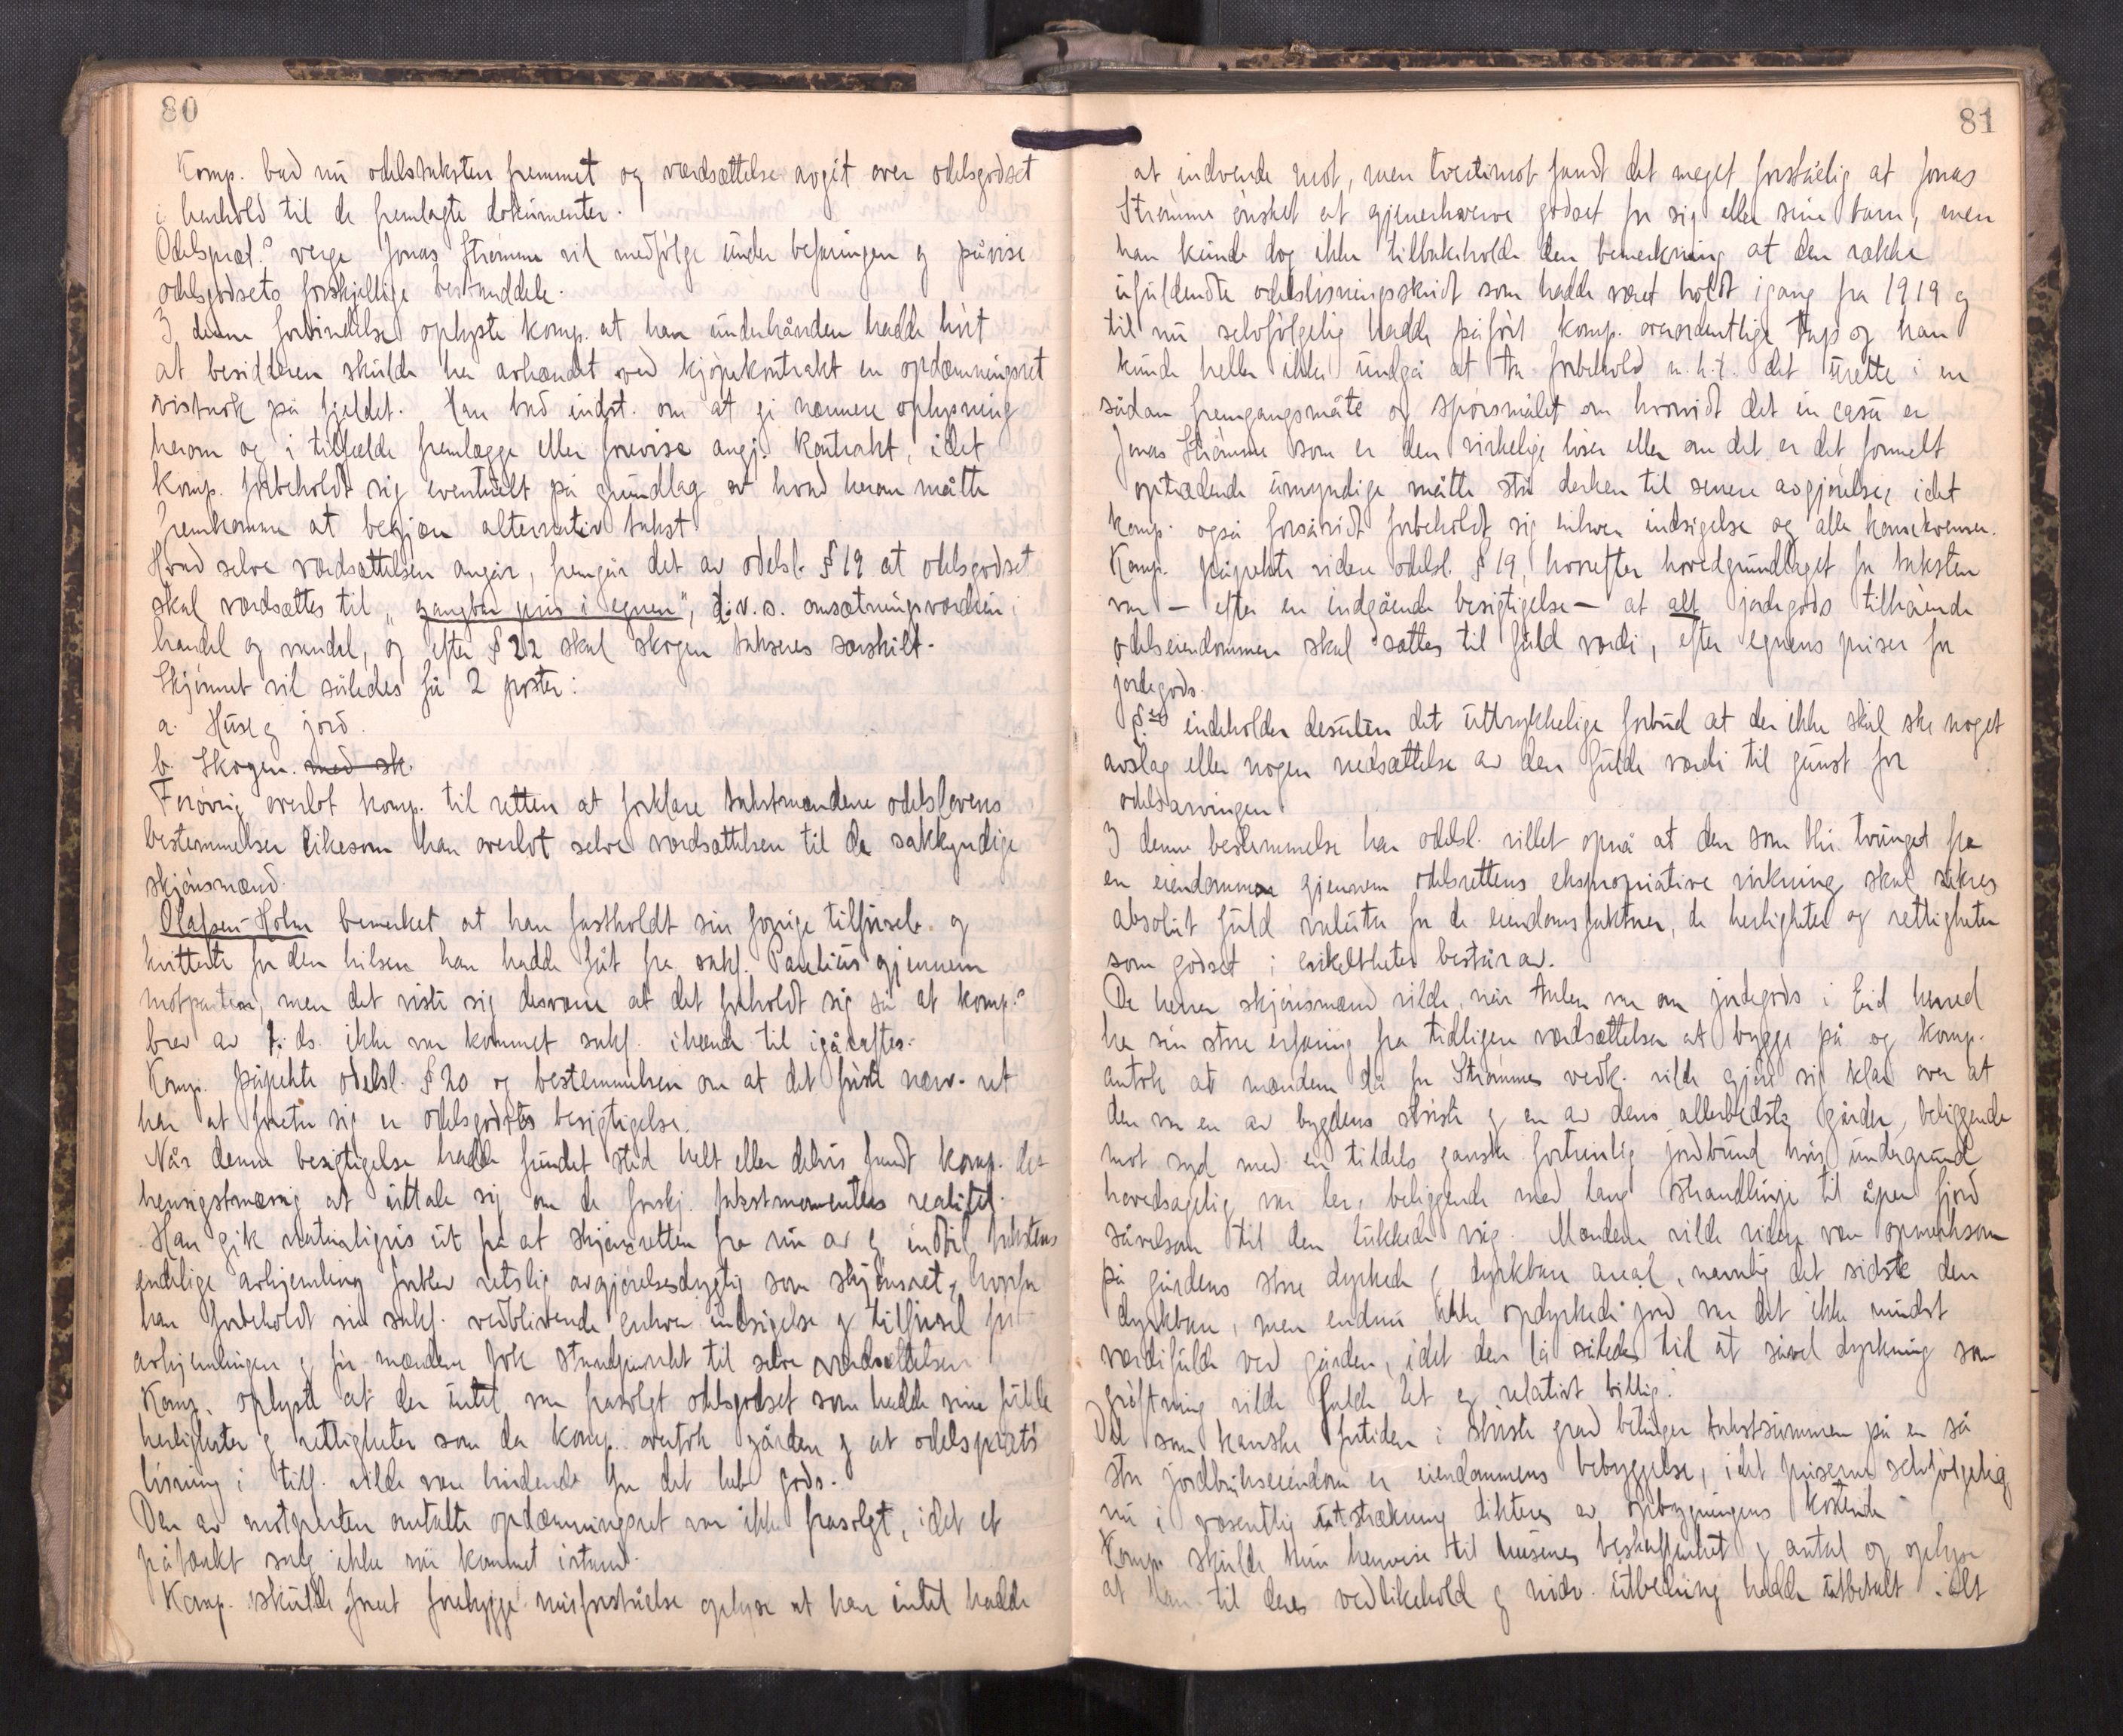 80
Komp. bad nu odelstaksten fremmet og værdsættelse avgit over odelsgodset
i henhold til de fremlagte dokumenter.
Odelspræt.s verge Jonas Strömme vil medfölge under befaringen og påvise
odelsgodsets forskjellige bestanddele.
I denne forbindelse oplyste komp. at han underhånden hadde hört
at besidderen skulde ha avhændet ved kjöpekontrakt en opdæmningsret
vistnok på fjeldet. Han bad indst. om at gi nærmere oplysning
herom og i tilfælde fremlægge eller forevise angj. kontrakt, idet
komp. forbeholdt sig eventuelt på grundlag av hvad herom måtte
fremkomme at begjære alternativ takst.
Hvad selve værdsættelsen angår, fremgår det av odelsl. § 19 at odelsgodset
skal værdsættes til "gangbar pris i egnen", d.v.s. omsætningsværdien i
handel og vandel, og efter § 22 skal skogen takseres særskilt.
Skjönnet vil således få 2 poster:
a. Huse og jord.
b. Skogen. med sk.
Forövrig overlot komp. til retten at forklare takstmændene odelslovens
bestemmelser likesom han overlot selve værdsættelsen til de sakkyndige
skjönsmænd.
Olafsen-Holm bemerket at han fastholdt sin forrige tilförsel og
kvitterte for den hilsen han hadde fåt fra sakf. Paulius gjennem
motparten, men det viste sig desværre at det forholdt sig så at komp.s
brev av 1. ds. ikke var kommet sakf. ihænde til igåraftes.
Komp. påpekte odelsl. § 20 og bestemmelsen om at det förste nærv. ret
har at foreta sig er odelsgodsets besigtigelse.
Når denne besigtigelse hadde fundet sted helt eller delvis fandt komp. det
hensigtsmæssig at uttale sig om de forskj. takstmomenters realitet.
Han gik naturligvis ut fra at skjönsretten fra nu av og indtil takstens
endelige avhjemling forblev retslig avgjörelsesdygtig som skjönsret, hvorfor
han forbeholdt sin sakf. vedblivende enhver indsigelse og tilförsel för
avhjemlingen og för mændene tok standpunkt til selve værdsættelsen.
Komp. oplyste at der intet var frasolgt odelsgodset som hadde sine fulde
herligheter og rettigheter som da komp. overtok gården og at odelsprætts
lösning i tilf. vilde være bindende for det hele gods.
Den av motparten omtalte opdæmningsret var ikke frasolgt, idet et
påtænkt salg ikke var kommet istand.
Komp. skulde forut forebygge misforståelse oplyse at han intet hadde
81
at indvende mot, men tvertimot fandt det meget forståelig at Jonas
Strömme önsket at gjenerhverve godset for sig eller sine barn, men
han kunde dog ikke tilbakeholde den bemerkning at den række
ufuldendte odelslösningsskridt som hadde været holdt igang fra 1919 og
til nu selvfölgelig hadde påfört komp. overordentlige tap og han
kunde heller ikke undgå at ta forbehold m.h.t. det urette i en
sådan fremgangsmåte og spörsmålet om hvorvidt det in casu er
Jonas Strömme som er den virkelige löser eller om det er det formelt
optrædende umyndige måtte stå derhen til senere avgjörelse, idet
komp. også forsåvidt forbeholdt sig enhver indsigelse og alle konsekvenser.
Komp. påpekte videre odelsl. § 19, hvorefter hovedgrundlaget for taksten
var - efter en indgående besigtigelse - at alt jordegods tilhörende
odelseiendommen skal sættes til fuld værdi, efter egnens priser for
jordegods.
§en indeholder desuten det uttrykkelige forbud at der ikke skal ske noget
avslag eller nogen nedsættelse av den fulde værdi til gunst for
odelsarvingen.
I denne bestemmelse har odelsl. villet opnå at den som blir tvunget fra
en eiendommen gjennem odelsrettens ekspropriative virkning skal sikres
absolut fuld valuta for de eiendomsfaktorer, de herligheter og rettigheter
som godset i enkeltheter består av.
De herrer skjönsmænd vilde, når talen var om jordegods i Eid herred
ha sin store erfaring fra tidligere værdsættelser at bygge på og komp.
antok at mændene da for Strömmes vedk. vilde gjöre sig klar over at
den var en av bygdens störste og en av dens allerbedste gårder, beliggende
mot syd med en tildels ganske fortrinlig jordbund hvis undergrund
hovedsagelig var ler, beliggende med lang strandlinje til åpen fjord
såvelsom til den lukkede våg. Mændene vilde videre være opmerksom
på gårdens store dyrkede og dyrkbare areal, nemlig det sidste den
dyrkbare, men endnu ikke opdyrkede jord var det ikke mindst
værdifulde ved gården, idet den lå således til at såvel dyrkning som
gröftning vilde falde let og relativt billig.
Det som kanske fortiden i störste grad betinger takstsummen på en så
stor jordbrukseiendom er eiendommens bebyggelse, idet priserne selvfölgelig
nu i væsentlig utstrækning dikteres av opbygningens kostende.
Komp. skulde kun henvise til husenes beskaffenhet og antal og oplyse
at han til deres vedlikehold og nödv. utbedring hadde utbetalt ialt